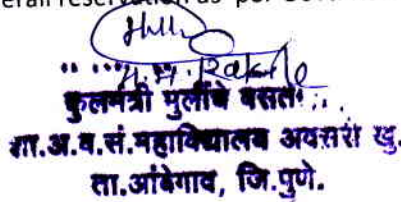 erall reservation as per
कुलमंत्री मुलींचे वसतं
शा.अ.व.सं.महाविद्यालय अवसरी खु.
ता.आंबेगाव, जि.पुणे.